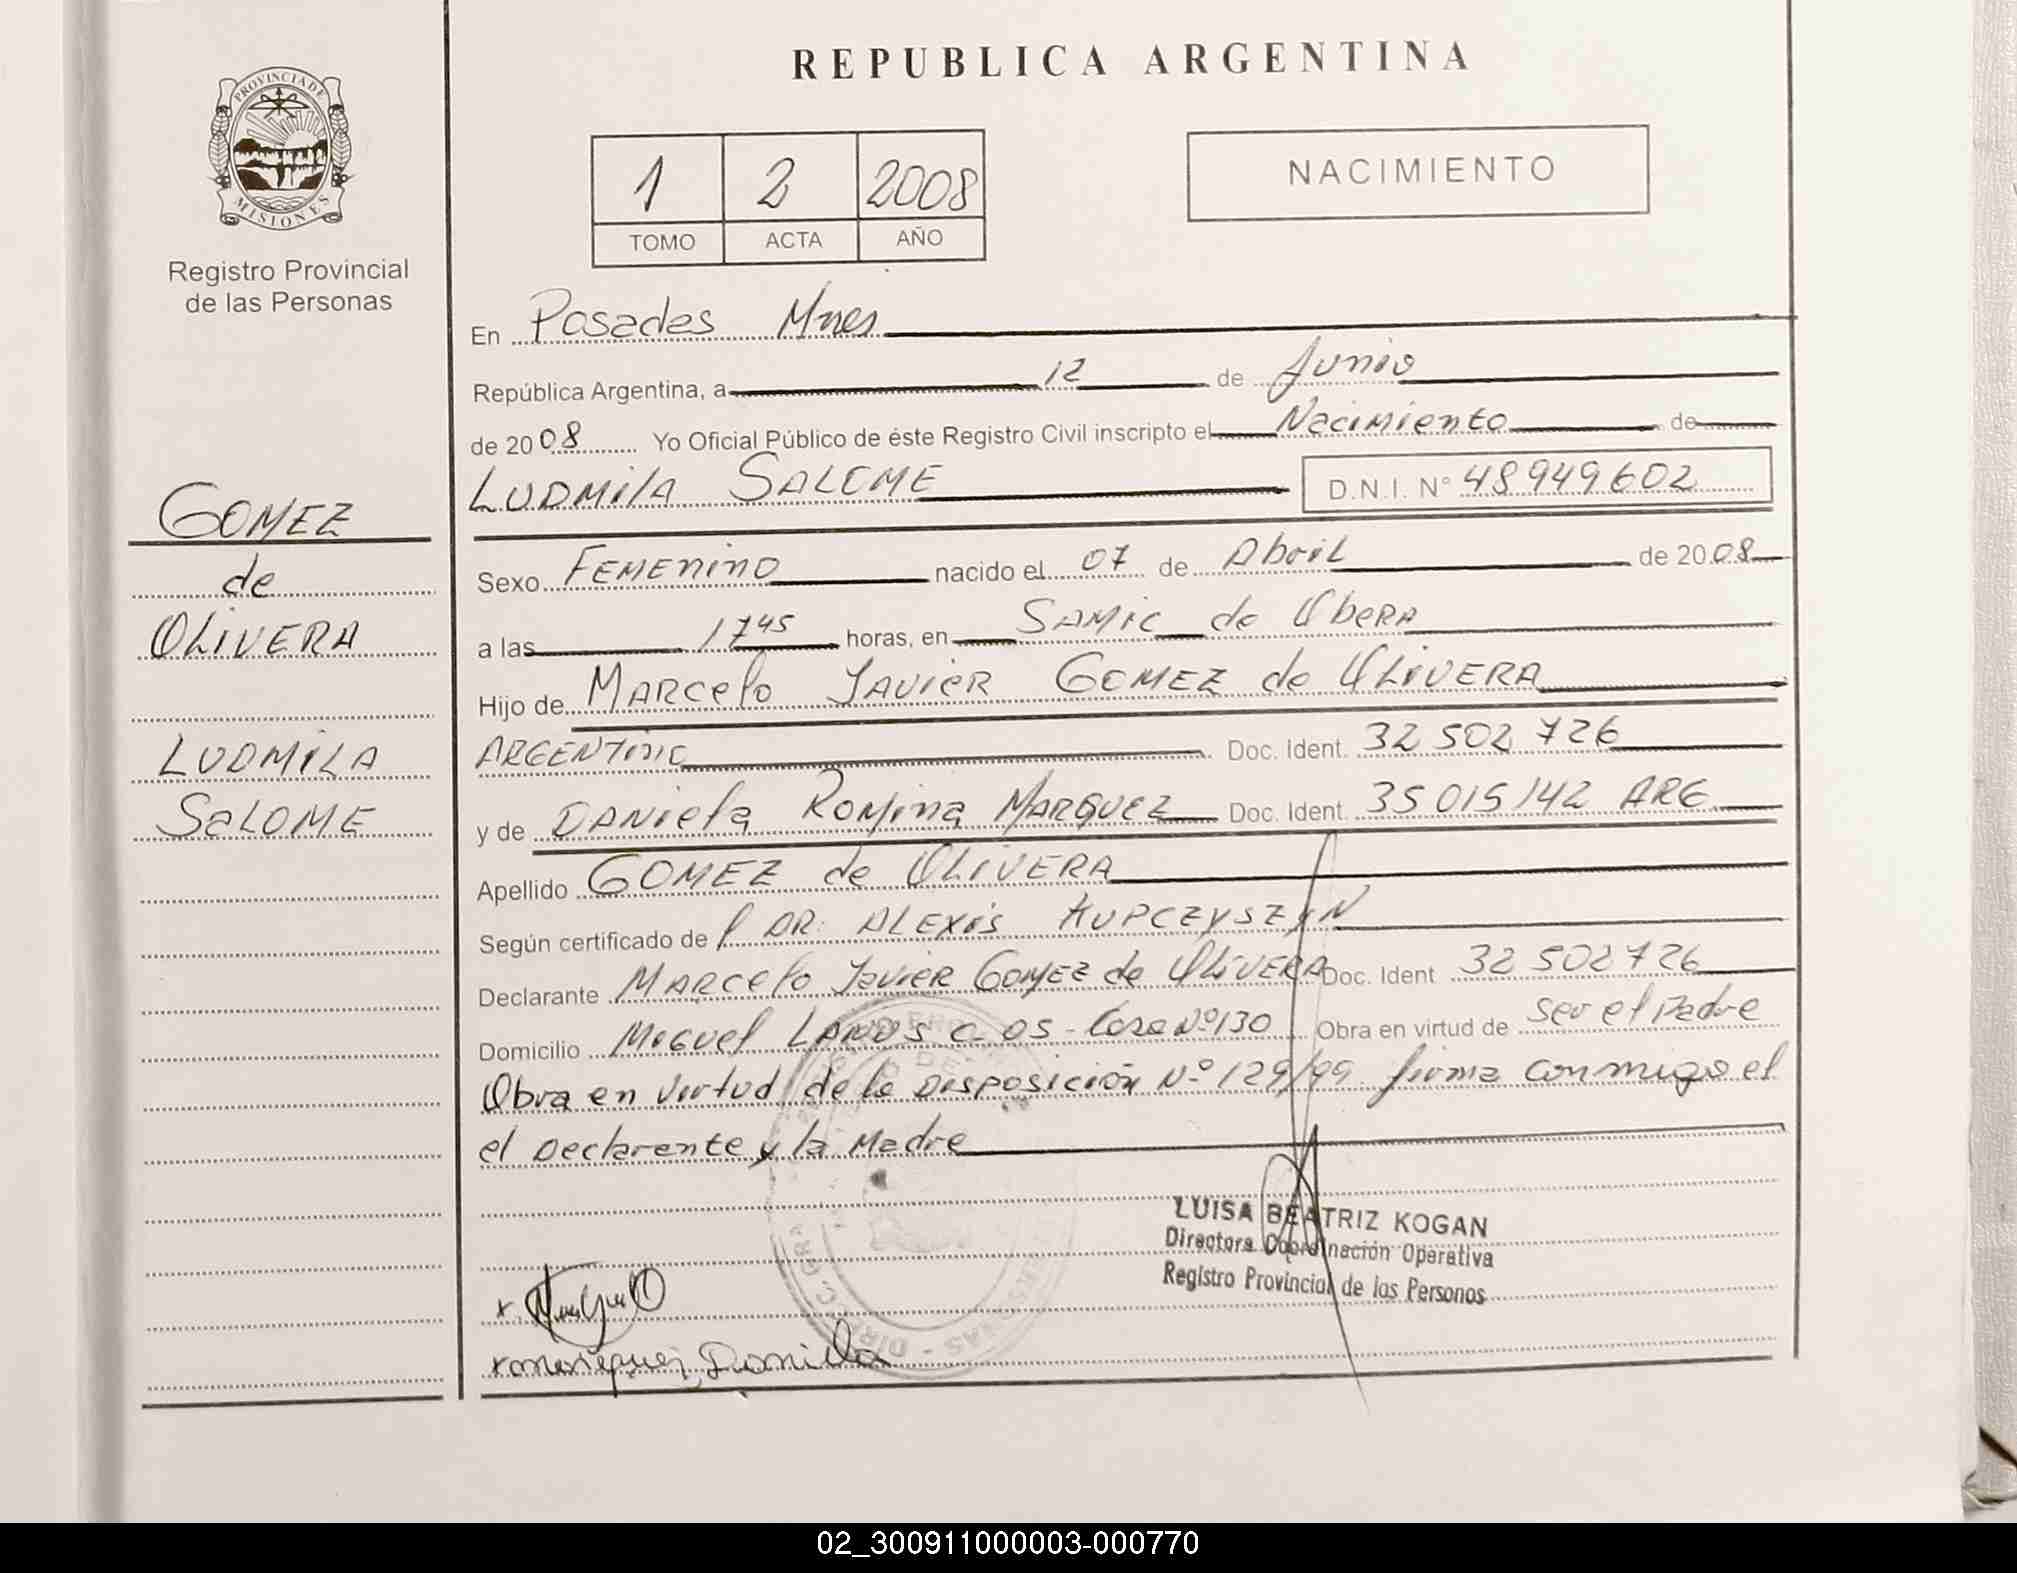 REPUBLICA ARGENTINA
PROVINCIA DE
MISIONES
Registro Provincial
de las Personas
1 2 2008
TOMO ACTA AÑO
NACIMIENTO
GOMEZ
de
OLIVERA
LUDMILA
SALOME
En Posadas Mnes
República Argentina, a 12 de Junio
de 2008 Yo Oficial Público de éste Registro Civil inscripto el Nacimiento de
LUDMILA SALOME D.N.I. N° 48949602
Sexo FEMENINO nacido el 07 de Abril de 2008
a las 17 45 horas, en SAMIC de Obera
Hijo de MARCELO JAVIER GOMEZ de OLIVERA
ARGENTINO Doc. Ident. 32 502 726
y de DANIELA ROMINA MARQUEZ Doc. Ident. 35 015 142 ARG
Apellido GOMEZ de OLIVERA
Según certificado de DR. ALEXIS KUPCZYSZYN
Declarante MARCELO JAVIER GOMEZ de OLIVERA Doc. Ident 32 502 726
Domicilio Miguel LANUS C- 05 - Casa Nº 130 Obra en virtud de ser el Padre
Obra en virtud de la Disposición Nº 129/99 firma conmigo el
el Declarante y la Madre
LUISA BEATRIZ KOGAN
Directora Coordinación Operativa
Registro Provincial de las Personas
02_300911000003-000770